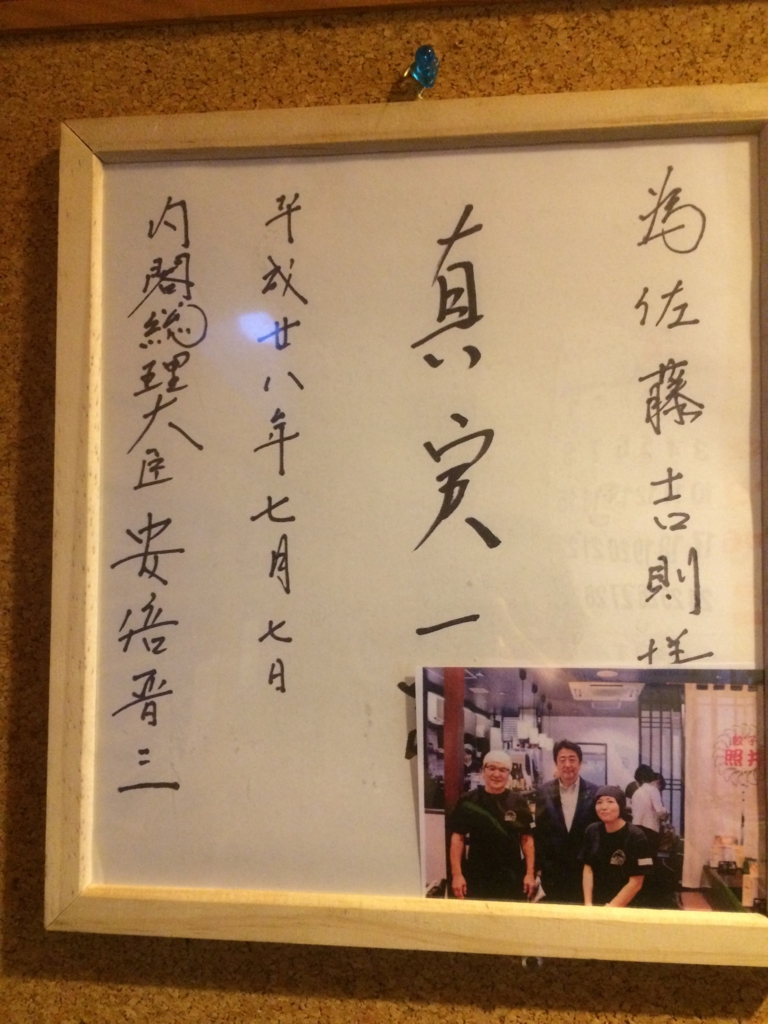 為佐藤吉則様
真実一
平成廿八年七月七日
内閣総理大臣 安倍晋三
餃子
照井